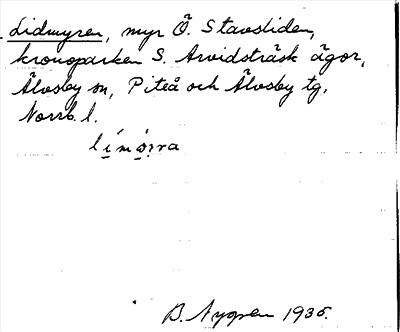 Lidmyren, myr Ö. Stavsliden,
kronoparken S. Arvidsträsk ägor,
Älvsby sn, Piteå och Älvsby tg,
Norrb. l.
B. Nygren 1935.